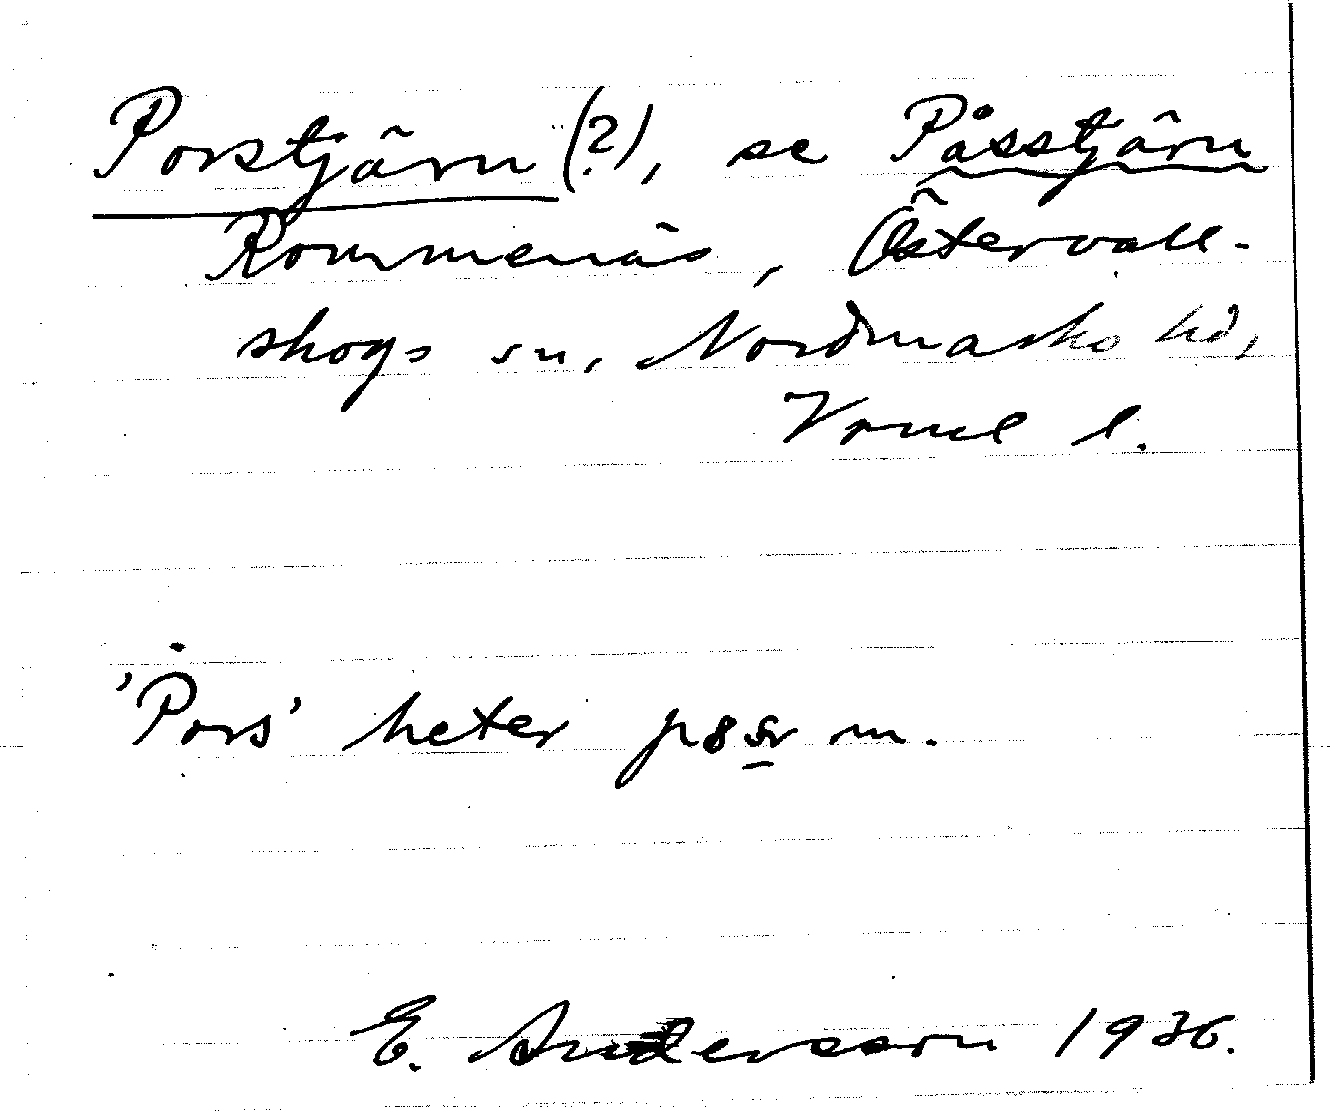 Porstjärn (?), se Påsstjärn
Rommenäs, Östervall-
skogs sn, Nordmarks hd,
Värml l.
'Pors' heter
m.
E. Andersson 1936.